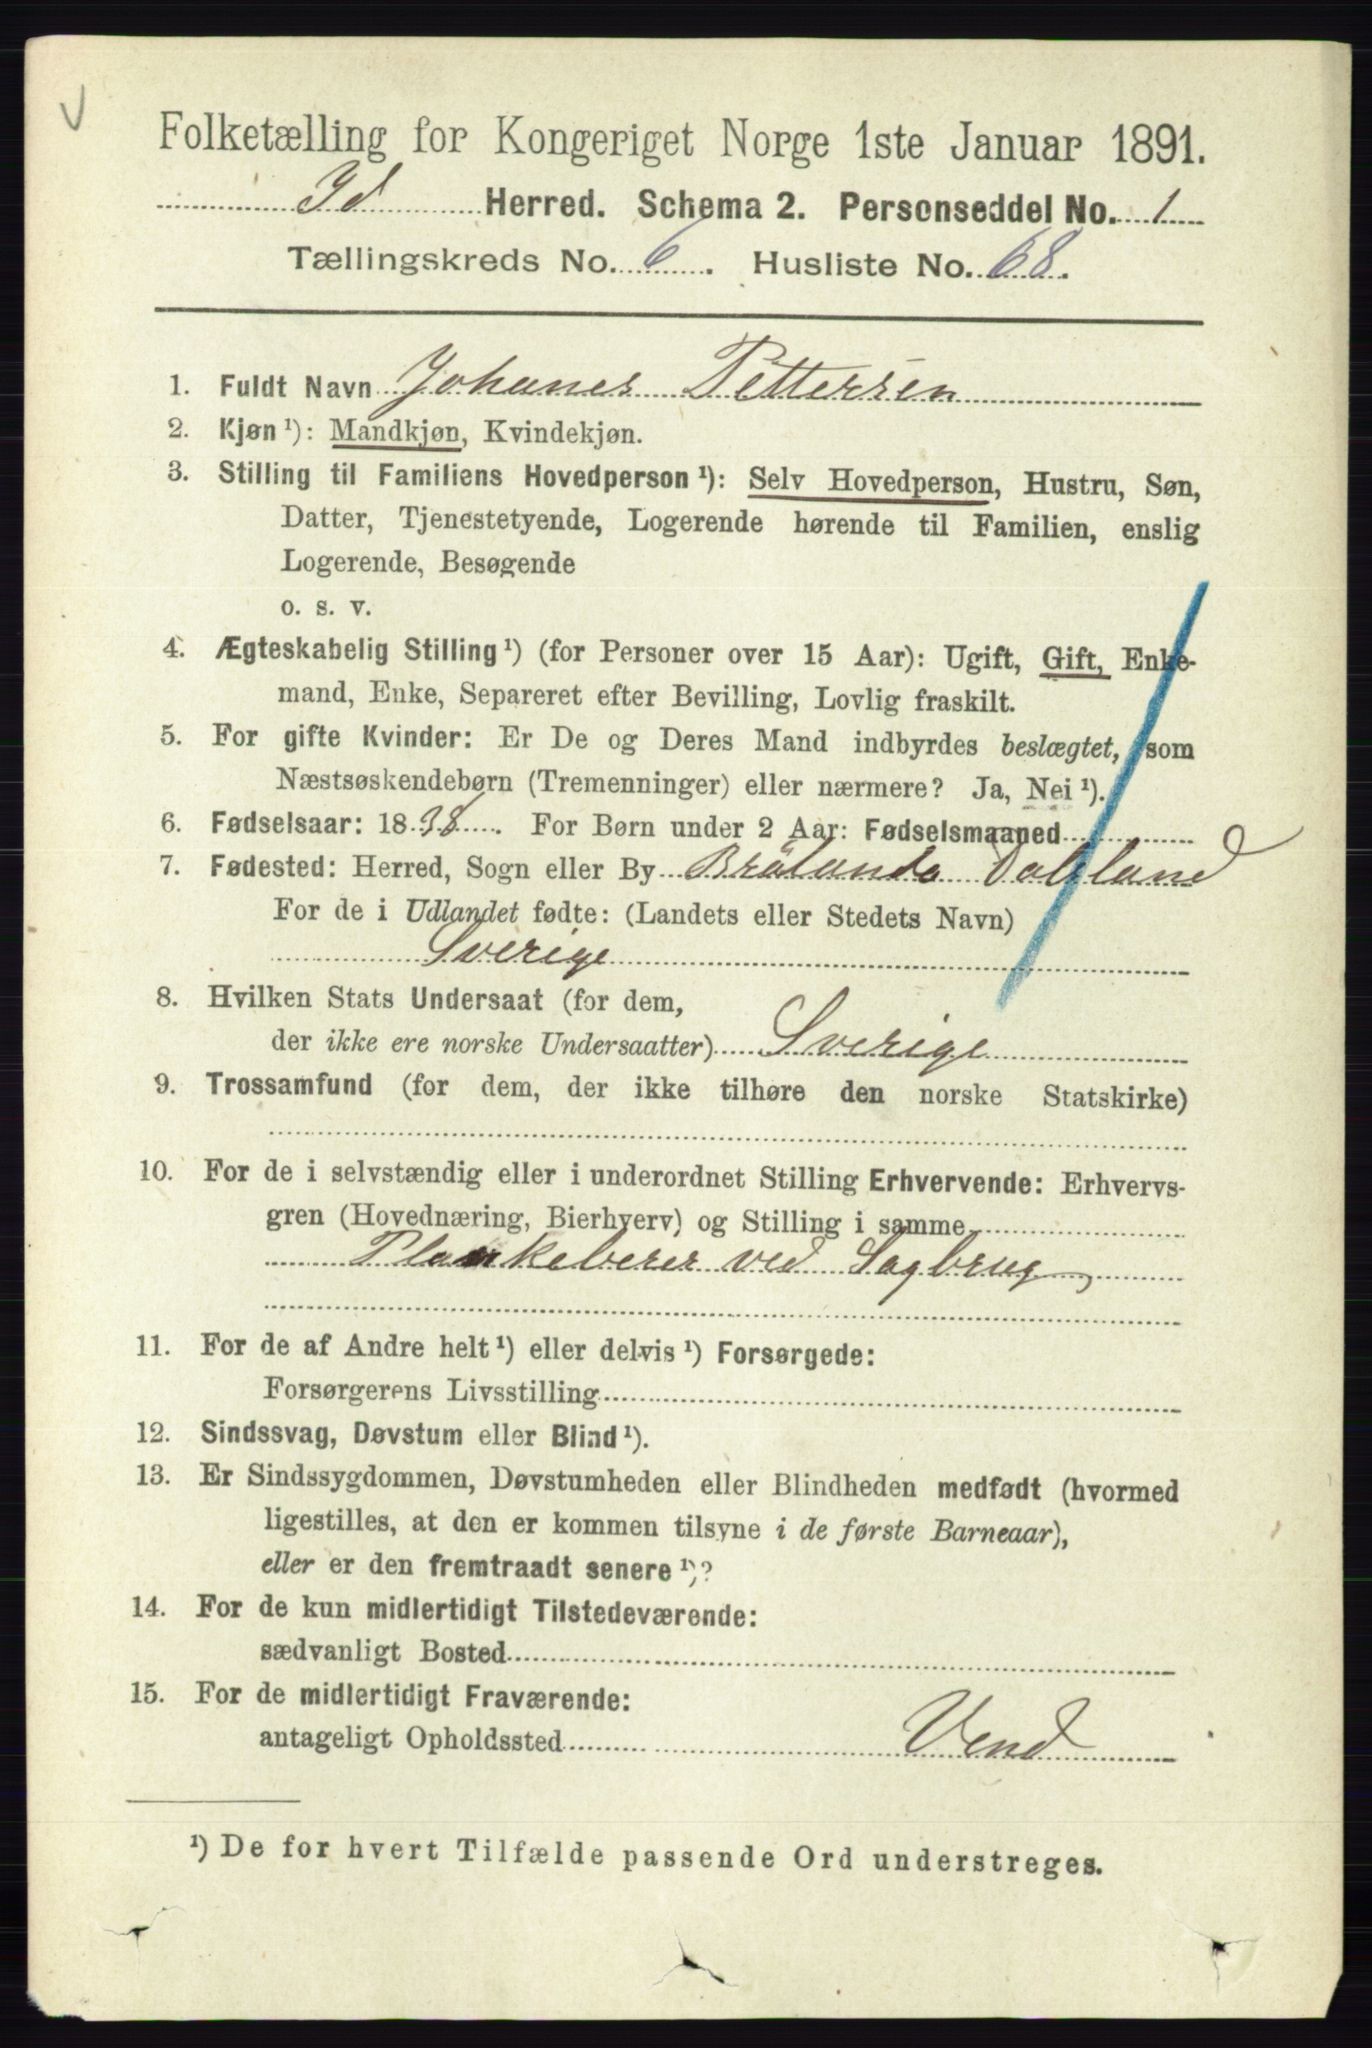 V
Folketælling for Kongeriget Norge 1ste Januar 1891.
Id Herred. Schema 2. Personseddel No. 1
Tællingskreds No. 6. Husliste No. 68.
1. Fuldt Navn Johanes Pettersen
2. Kjøn ¹): Mandkjøn, Kvindekjøn.
3. Stilling til Familiens Hovedperson ¹): Selv Hovedperson, Hustru, Søn,
Datter, Tjenestetyende, Logerende hørende til Familien, enslig
Logerende, Besøgende
o. s. v.
4. Ægteskabelig Stilling ¹) (for Personer over 15 Aar): Ugift, Gift, Enke-
mand, Enke, Separeret efter Bevilling, Lovlig fraskilt.
5. For gifte Kvinder: Er De og Deres Mand indbyrdes beslægtet, som
Næstsøskendebørn (Tremenninger) eller nærmere? Ja, Nei ¹).
6. Fødselsaar: 1838. For Børn under 2 Aar: Fødselsmaaned
7. Fødested: Herred, Sogn eller By Brålanda Dalsland
For de i Udlandet fødte: (Landets eller Stedets Navn)
Sverige
8. Hvilken Stats Undersaat (for dem,
der ikke ere norske Undersaatter) Sverige
9. Trossamfund (for dem, der ikke tilhøre den norske Statskirke)
10. For de i selvstændig eller i underordnet Stilling Erhvervende: Erhvervs-
gren (Hovednæring, Bierhverv) og Stilling i samme
Plankeberer ved Sagbrug
11. For de af Andre helt ¹) eller delvis ¹) Forsørgede:
Forsørgerens Livsstilling
12. Sindssvag, Døvstum eller Blind ¹).
13. Er Sindssygdommen, Døvstumheden eller Blindheden medfødt (hvormed
ligestilles, at den er kommen tilsyne i de første Barneaar),
eller er den fremtraadt senere ¹)?
14. For de kun midlertidigt Tilstedeværende:
sædvanligt Bosted
15. For de midlertidigt Fraværende:
antageligt Opholdssted
Vend
¹) De for hvert Tilfælde passende Ord understreges.